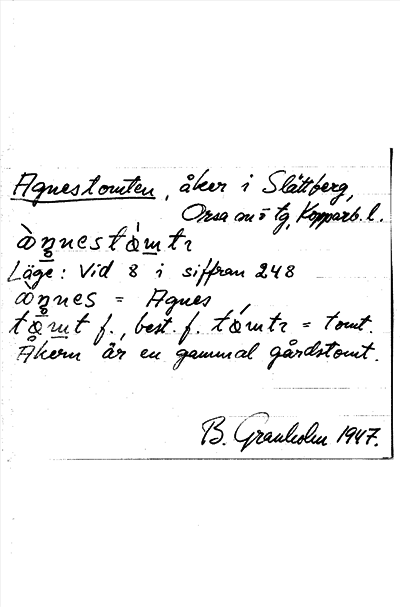 Agnestomten, åker i Slättberg,
Orsa sn o tg, Kopparb. l.
àŋnestǿmtı
Läge: Vid 8 i siffran 248
àŋnes = Agnes
tǿmt f., best. f. tǿmtı = tomt.
Åkern är en gammal gårdstomt.
B. Granholm 1947.